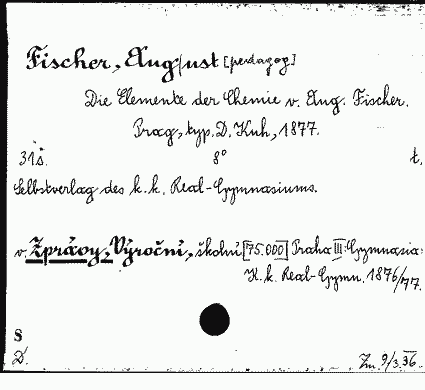 Fischer, Aug/ust [pedagog]
Die Elemente der Chemie v. Aug. Fischer.
Prag, typ. D. Kuh, 1877.
31 s. 8° t.
Selbstverlag des k. k. Real-Gymnasiums.
v. Zprávy, Výroční, školní [75.000] Praha III: Gymnasia:
K. k. Real-Gymn. 1876/77.
S
D. Zm. 9/3.36